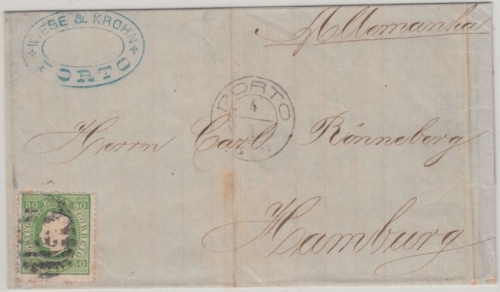 Allemanha
* WIESE & KROHN *
PORTO
PORTO
4
Herrn Carl Rönneberg
Hamburg
50 50
50